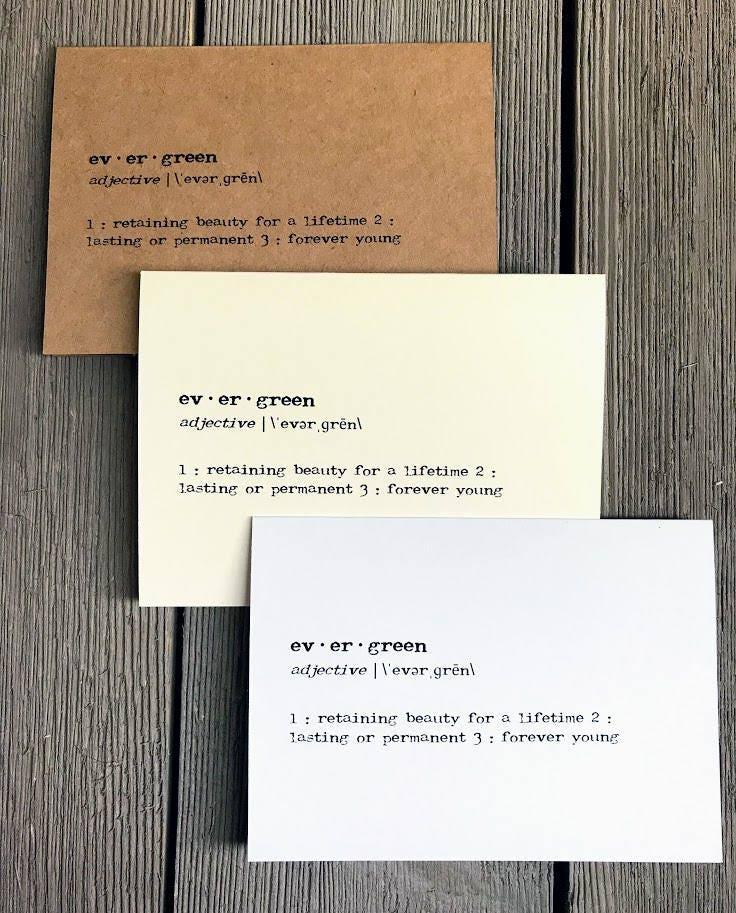 ev · er · green
adjective | \ˈevərˌgrēn\
1 : retaining beauty for a lifetime 2 :
lasting or permanent 3 : forever young
ev · er · green
adjective | \ˈevərˌgrēn\
1 : retaining beauty for a lifetime 2 :
lasting or permanent 3 : forever young
ev · er · green
adjective | \ˈevərˌgrēn\
1 : retaining beauty for a lifetime 2 :
lasting or permanent 3 : forever young